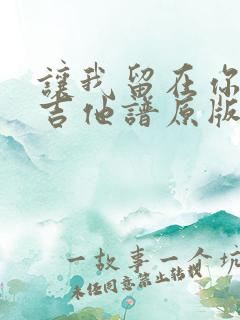 讓我留在你
吉他譜原版
一故事一个坑
未经同意禁止转载